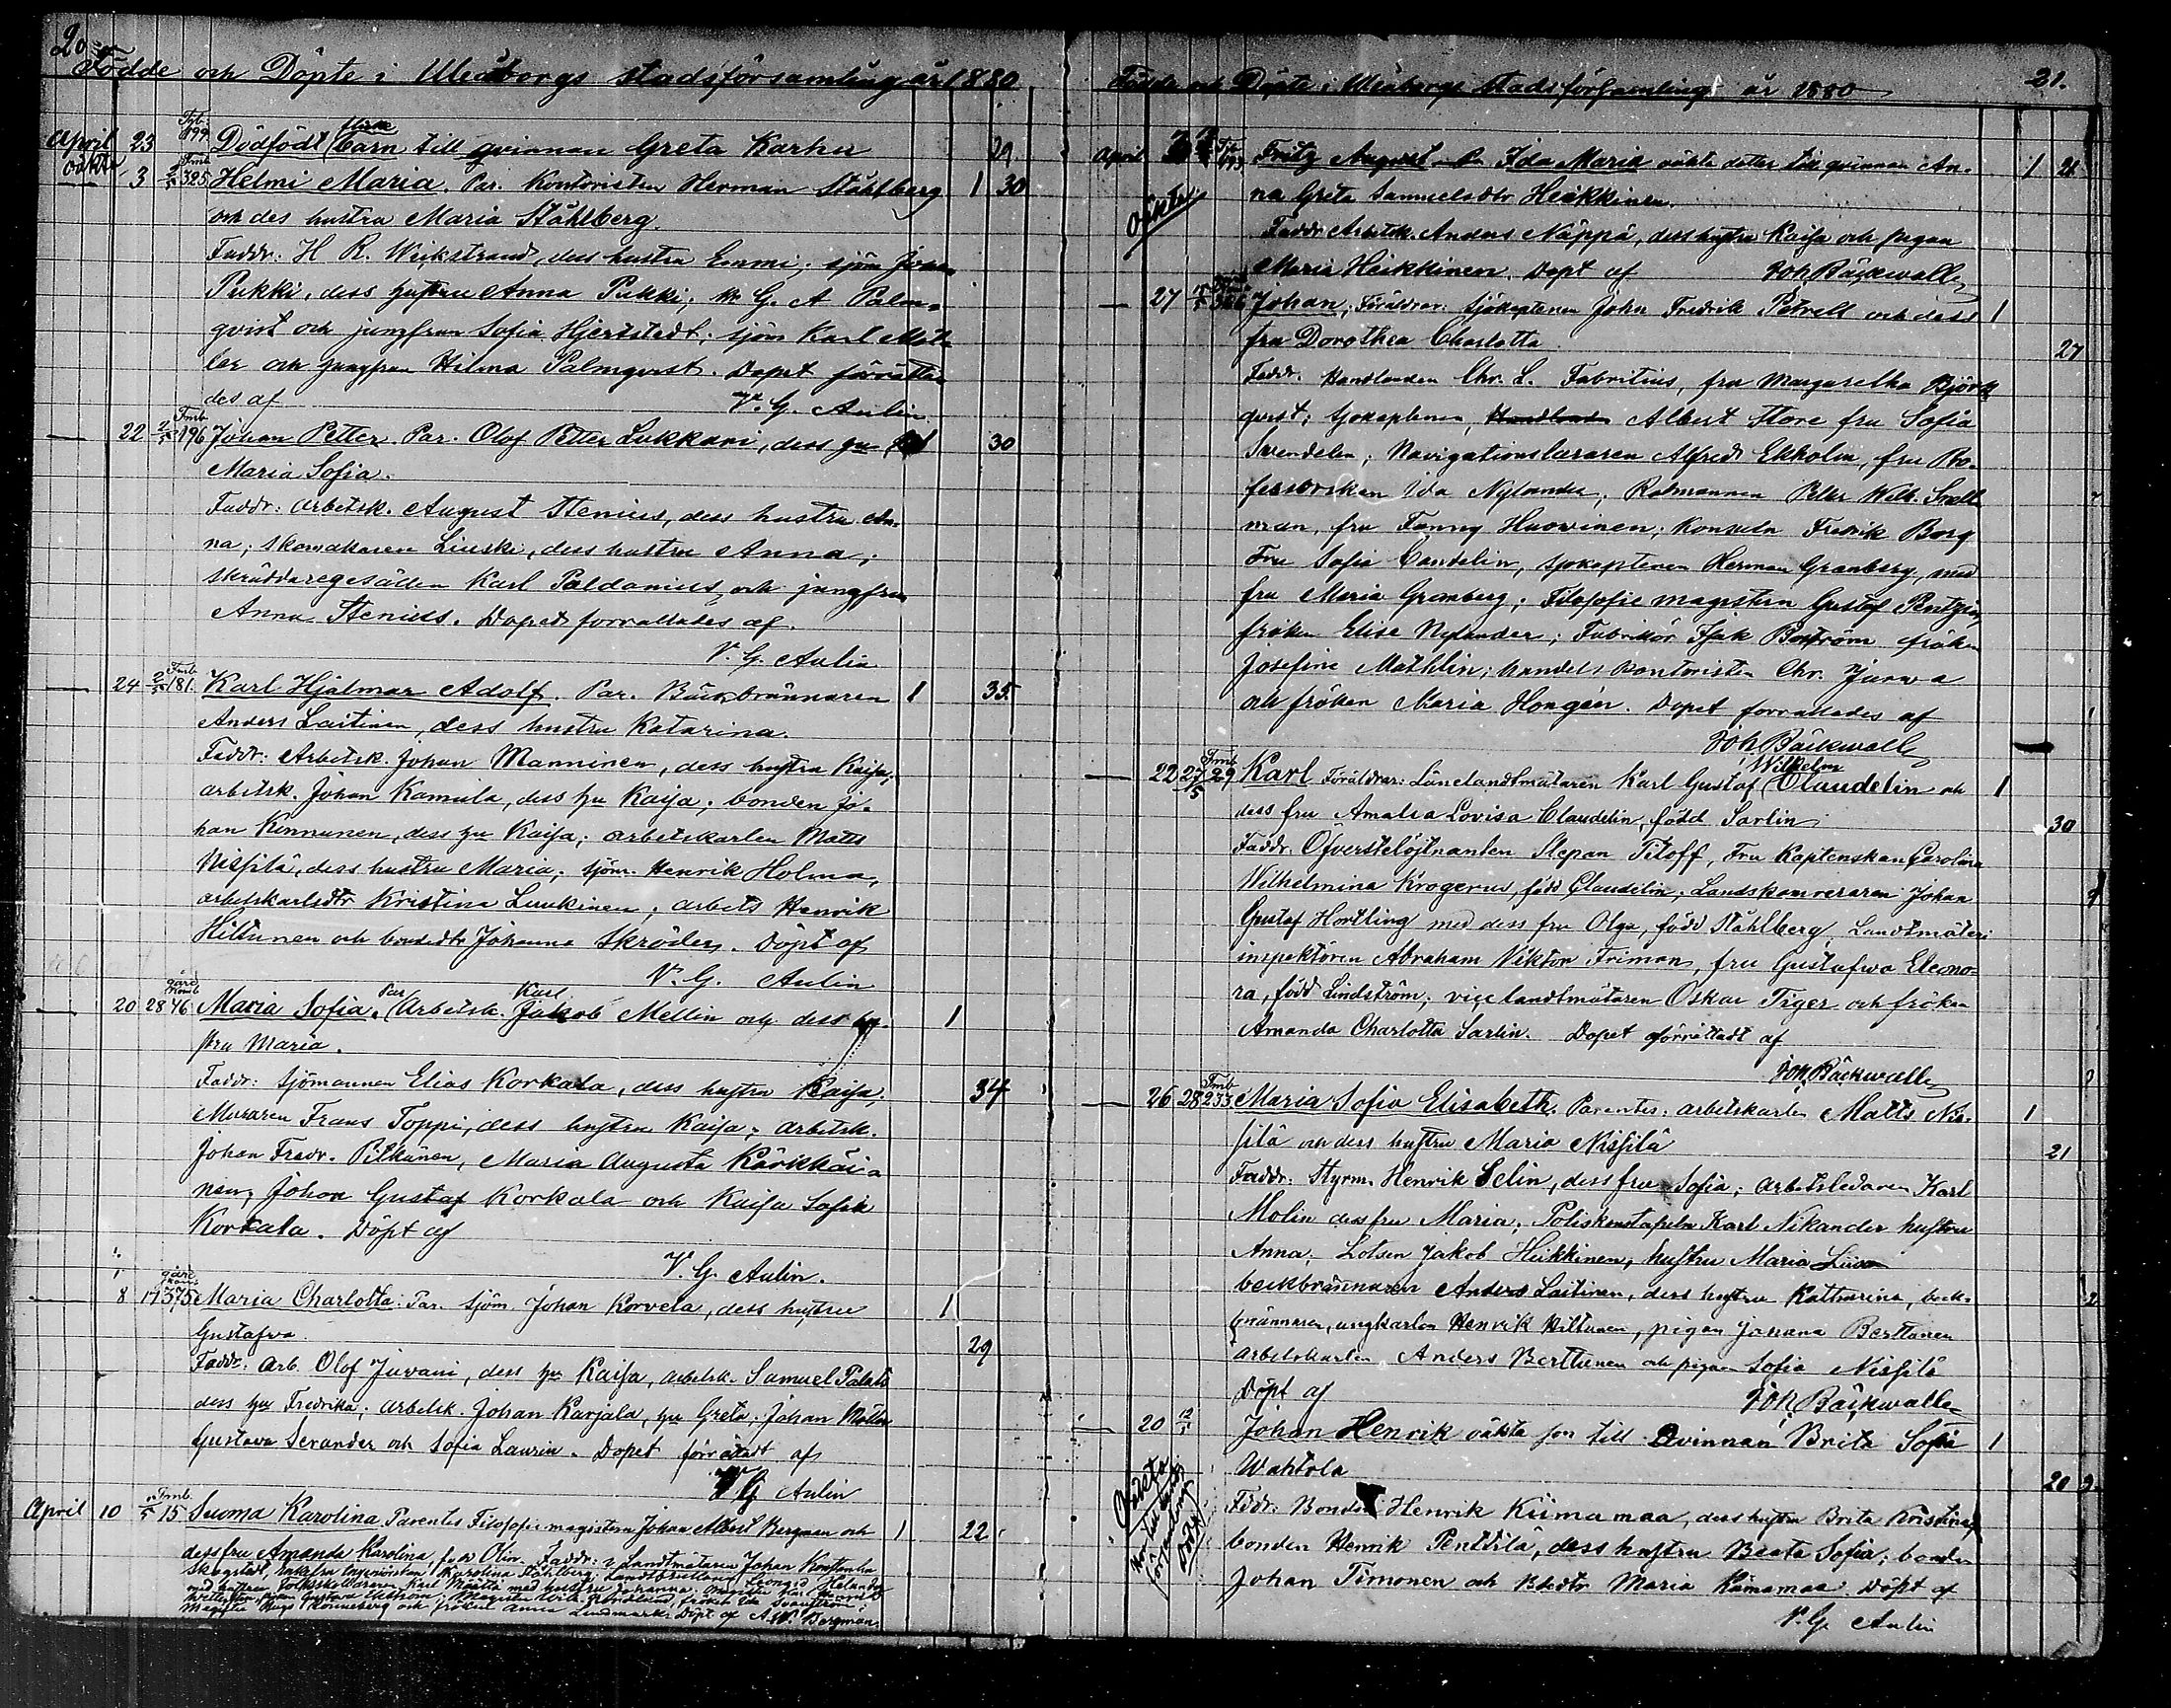 20
Födde och Döpte i Uleåborgs stadsförsamling år 1880
April 23 199 Dödfödt barn till qvinnan Greta Karhu 29
oäkta
3 2/5 Fmb 325 Helmi Maria. Par. Kontoristen Herman Ståhlberg 1 30
och des hustru Maria Ståhlberg.
Faddr. H R. Wickstrand, dess hustru Emmi; sjöm Johan
Pukki, dess hustru Anna Pukki; G. A Palm-
qvist och jungfrun Sofia Hjertstedt; sjöm Karl Möl-
ler och jungfrun Hilma Palmqvist. Dopet förrätta-
des af V. G. Aulin
22 2/5 Fmb 196 Johan Petter. Par. Olof Petter Lukkari, dess hu 1 30
Maria Sofia.
Faddr: arbetsk. August Stenius, dess hustru An-
na; skomakaren Liuski, dess hustru Anna;
skräddaregesällen Karl Paldanius, och jungfrun
Anna Stenius. Dopet förrättades af.
V. G. Aulin
24 2/5 Fmb 181 Karl Hjalmar Adolf. Par. Beckbrännaren 1 35
Anders Laitinen, dess hustru Katarina.
Faddr: Arbetsk. Johan Manninen, dess hustru Kaisa;
arbetsk. Johan Kamula, dess hu Kaisa; bonden Jo-
han Kinnunen, dess hu Kaisa; arbetskarlen Matts
Nissilä, dess hustru Maria; sjöm. Henrik Holma,
arbetskarlsdtr Kristina Luukinen; arbets Henrik
Hiltunen och bondedtr Johanna Skröder. Döpt af
V. G. Aulin
20 28 46 Maria Sofia. Par Arbetsk. Karl Jakob Mellin och dess hu- 1
stru Maria.
Faddr: Sjömannen Elias Korkala, dess hustru Kaisa; 34
Muraren Frans Toppi, dess hustru Kaisa; arbetsk.
Johan Fredr. Pitkänen, Maria Augusta Karkkäi-
nen, Johan Gustaf Korkala och Kaisa Sofia
Korkala. Döpt af
V. G. Aulin.
8 17 375 Maria Charlotta. Par. sjöm Johan Korvela, dess hustru 1
Gustafva. 29
Faddr. Arb. Olof Juvani, dess hu Kaisa, arbetsk. Samuel
dess hu Fredrika; arbetsk. Johan Karjala, hu Greta; Johan
Gustava Serander och Sofia Laurin. Dopet förrättadt af
V G Aulin
April 10 Fmb 15 Suoma Karolina Parentes Filosofie magistern Johan Albert Bergman och 1 22
dess fru Amanda Karolina, född Olin. Faddr: v Landtmätaren Johan
med hustrun Folkskolläraren Karl Määttä med hustru Johanna;
och fröken Anna Lindmark. Döpt af A. W. Bergman.
Födde och Döpte i Uleåborgs stadsförsamling år 1880
21.
April Ida Maria oäkta dotter till qvinnan An- 1 21
oäkta
na Greta Samuelsdtr Heikkinen.
Faddr Arbetsk. Anders Näppä, dess hustru Kaisa och pigan
Maria Heikkinen. Döpt af Joh Bäckwall
27 Johan, Föräldrar: Sjökaptenen John Fredrik Petrell och dess 1
fru Dorothea Charlotta 27
Faddr. Handlanden Chr. L. Fabritius, fru Margaretha Björk
qvist; sjökaptenen, Albert Store fru Sofia
Swendelin; Navigationsläraren Alfred Ekholm, fru Pro-
fessorskan Ida Nylander; Rådmannen Peter Wilh. Snell-
man, fru Fanny Huowinen; Konsuln Fredrik Borg
Fru Sofia Candelin, sjökaptenen Herman Granberg, med
fru Maria Granberg; Filosofie magistern Gustaf Pentzin,
fröken Elise Nylander; Fabrikör Isak Boström fröken
Josefine Mathlin; handels kontoristen Chr. Jurwa
och fröken Maria Hongén. Dopet förrättades af
Joh Bäckwall
22 27/5 Fmb 29 Karl Föräldrar: Länelandtmätaren Karl Gustaf Wilhelm Claudelin och 1
dess fru Amalia Lovisa Claudelin, född Sarlin 30
Faddr. Öfverstelöjtnanten Stepan Titoff, Fru Kaptenskan Carolina
Wilhelmina Krogerus, född Claudelin; Landskamreraren Johan
Gustaf Hortling med dess fru Olga, född Ståhlberg, Landtmäteri
inspektören Abraham Viktor Friman, fru Gustafva Eleono-
ra, född Lindström; vice landtmätaren Oskar Tiger och fröken
Amanda Charlotta Sarlin. Dopet förrättadt af
Joh. Bäckwall
26 28 Fmb 233 Maria Sofia Elisabeth. Parentes: arbetskarlen Matts Nis- 1
silä och dess hustru Maria Nissilä 21
Faddr: Styrm. Henrik Selin, dess fru Sofia; arbetsledaren Karl
Molin dess fru Maria; Poliskonstapeln Karl Nikander hustru
Anna; Lotsen Jakob Heikkinen, hustru Maria
beckbrännaren Anders Laitinen, dess hustru Katharina, beck-
brännaren, ungkarlen Henrik Hiltunen, pigan Johanna Berttunen
arbetskarlen Anders Berttunen och pigan Sofia Nissilä
Döpt af Joh Bäckwall
20 Johan Henrik oäkta son till Qvinnan Brita Sofia 1
oäkta
Wahtola 20
Faddr: Bonden Henrik Kiimamaa, dess hustru Brita Kristina;
bonden Henrik Penttilä, dess hustru Beata Sofia; bonden
Johan Timonen och bdedtr Maria Kiimamaa. Döpt af
V. G. Aulin